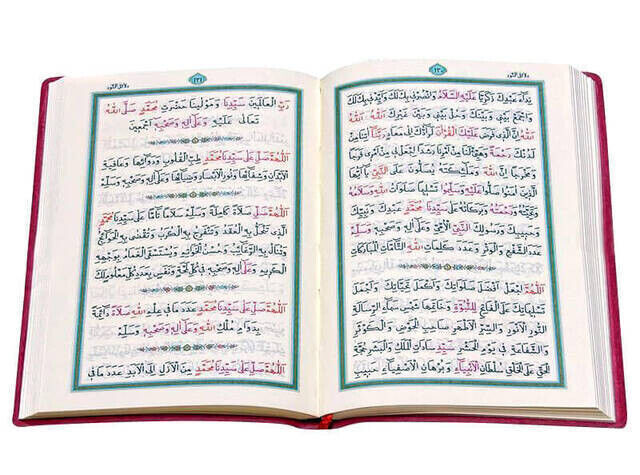 ١٣٠
نِدَاءَ عَبْدِكَ زَكَرِيَّا عَلَيْهِ السَّلَامُ وَانْصُرْنِي بِكَ لَكَ وَأَيِّدْنِي بِكَ لَكَ
وَاجْمَعْ بَيْنِي وَبَيْنَكَ وَحُلْ بَيْنِي وَبَيْنَ غَيْرِكَ اللهُ اللهُ
اللهُ اِنَّ الَّذِي فَرَضَ عَلَيْكَ الْقُرْآنَ لَرَادُّكَ اِلَى مَعَادٍ رَبَّنَا آتِنَا مِنْ
لَدُنْكَ رَحْمَةً وَهَيِّئْ لَنَا مِنْ اَمْرِنَا
اِنَّ اللهَ وَمَلَئِكَتَهُ يُصَلُّونَ عَلَى النَّبِيِّ يَا اَيُّهَا
الَّذِينَ آمَنُوا صَلُّوا عَلَيْهِ وَسَلِّمُوا تَسْلِيمًا صَلَوَاتُ اللهِ وَسَلَامُهُ
وَتَحِيَّتُهُ وَرَحْمَتُهُ وَبَرَكَاتُهُ عَلَى سَيِّدِنَا مُحَمَّدٍ عَبْدِكَ وَنَبِيِّكَ
وَرَسُولِكَ النَّبِيِّ الْاُمِّيِّ وَعَلَى اٰلِهِ وَصَحْبِهِ وَسَلِّمْ
عَدَدَ الشَّفْعِ وَالْوَتْرِ وَعَدَدَ كَلِمَاتِ اللهِ التَّامَّاتِ الْمُبَارَكَاتِ
اَللّٰهُمَّ اجْعَلْ اَفْضَلَ صَلَوَاتِكَ وَاَكْمَلَ تَحِيَّاتِكَ وَاَجْمَلَ
تَسْلِيمَاتِكَ عَلَى الْفَاتِحِ لِلنُّبُوَّةِ وَخَاتِمِهَا شَمْسِ سَمَاءِ الرِّسَالَةِ
النُّورِ الْاَنْوَرِ وَالسِّرِّ الْاَطْهَرِ صَاحِبِ الْحَوْضِ وَالْكَوْثَرِ
وَالشَّفَاعَةِ فِي يَوْمِ الْمَحْشَرِ سَيِّدِ سَادَاتِ الْمَلَكِ وَالْبَشَرِ حُجَّةِ
الْحَقِّ عَلَى الْخَلْقِ سُلْطَانِ الْاَنْبِيَاءِ وَبُرْهَانِ الْاَصْفِيَاءِ حَبِيبِ
١٣١
رَبِّ الْعَالَمِينَ سَيِّدِنَا وَمَوْلٰينَا حَضْرَتِ مُحَمَّدٍ صَلَّى اللهُ
تَعَالَى عَلَيْهِ وَعَلَى اٰلِهِ وَصَحْبِهِ اَجْمَعِينَ
اَللّٰهُمَّ صَلِّ عَلَى سَيِّدِنَا مُحَمَّدٍ طِبِّ الْقُلُوبِ وَدَوَائِهَا وَعَافِيَةِ
الْاَبْدَانِ وَشِفَائِهَا وَنُورِ الْاَبْصَارِ وَضِيَائِهَا وَعَلَى اٰلِهِ وَصَحْبِهِ وَسَلِّمْ
اَللّٰهُمَّ صَلِّ صَلَاةً كَامِلَةً وَسَلِّمْ سَلَامًا تَامًّا عَلَى سَيِّدِنَا مُحَمَّدٍ
الَّذِي تَنْحَلُّ بِهِ الْعُقَدُ وَتَنْفَرِجُ بِهِ الْكُرَبُ وَتُقْضَى بِهِ الْحَوَائِجُ
وَتُنَالُ بِهِ الرَّغَائِبُ وَحُسْنُ الْخَوَاتِمِ وَيُسْتَسْقَى الْغَمَامُ بِوَجْهِهِ
الْكَرِيمِ وَعَلَى اٰلِهِ وَصَحْبِهِ فِي كُلِّ لَمْحَةٍ وَنَفَسٍ بِعَدَدِ كُلِّ مَعْلُومٍ لَكَ
اَللّٰهُمَّ صَلِّ عَلَى سَيِّدِنَا مُحَمَّدٍ عَدَدَ مَا فِي عِلْمِ اللهِ صَلَاةً دَائِمَةً
بِدَوَامِ مُلْكِ اللهِ وَعَلَى اٰلِهِ وَصَحْبِهِ وَسَلِّمْ
اَللّٰهُمَّ صَلِّ عَلَى سَيِّدِنَا مُحَمَّدٍ مِنَ الْاَزَلِ اِلَى الْاَبَدِ عَدَدَ مَا فِي